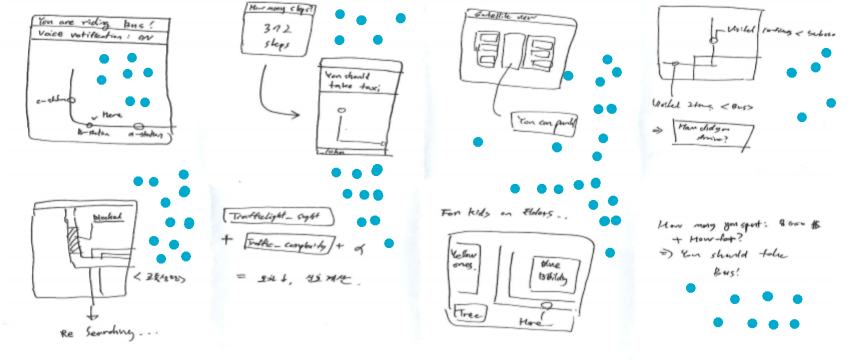 You are riding Bus!
Voice notification: ON
Here
B-station
How many steps?
312
steps
You should
take taxi
Satellite view
You can park
Visited 2 times <Bus>
⇒ How did you
drive?
Blocked
Re Searching...
Trafficlight_sight
+ Traffic_complexity + α
For kids or Elders..
Yellow
ones.
Blue
Building
Tree
Here
How many you spent:
+ How far?
⇒ You should take
Bus!